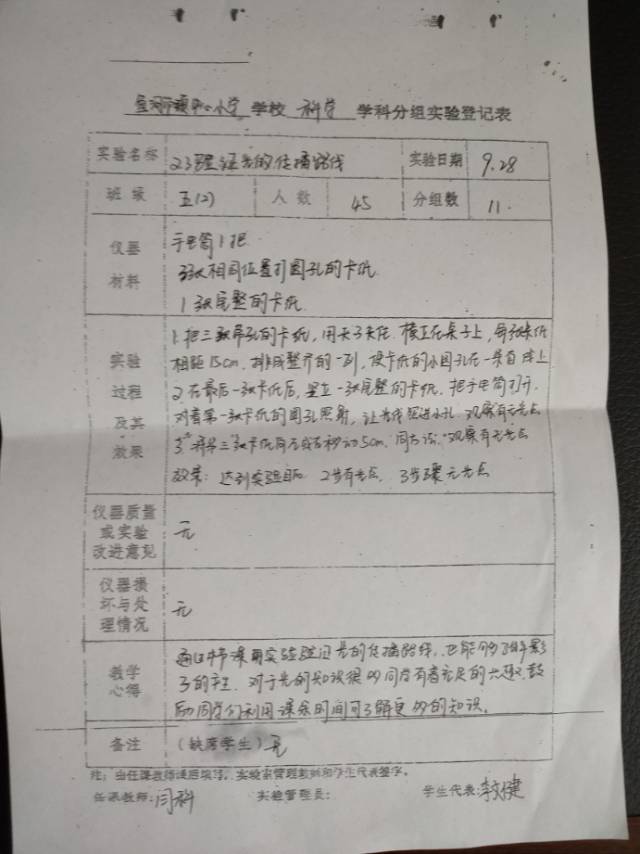 中心小学 学校 科学 学科分组实验登记表
实验名称 2.3验证光的传播路线 实验日期 9.28
班级 五(2) 人数 45 分组数 11.
仪器材料 手电筒1把
3张相同位置打圆孔的卡纸
1张完整的卡纸
实验过程及其效果 1.把三张带孔的卡纸,用夹子夹住.横立在桌子上,每张卡纸
相距15cm.排成整齐的一列,使卡纸的小圆孔在一条直线上
2.在最后一张卡纸后,竖立一张完整的卡纸.把手电筒打开.
对着第一张卡纸的圆孔照射,让光线照进小孔.观察有无光点
3.将第三张卡纸向左或右移动5cm.同方法.观察有无光点
效果:达到实验目标. 2步有光点. 3步骤无光点
仪器质量或实验改进意见 无
仪器损坏与处理情况 无
教学心得 通过本节课用实验验证光的传播路线.也能够了解影
子的产生.对于光的知识很多同学有着充足的兴趣.鼓
励同学们利用课余时间可了解更多的知识。
备注 (缺席学生)无
注:由任课教师课后填写,实验室管理教师和学生代表签字。
任课教师:闫科 实验管理员: 学生代表:李健